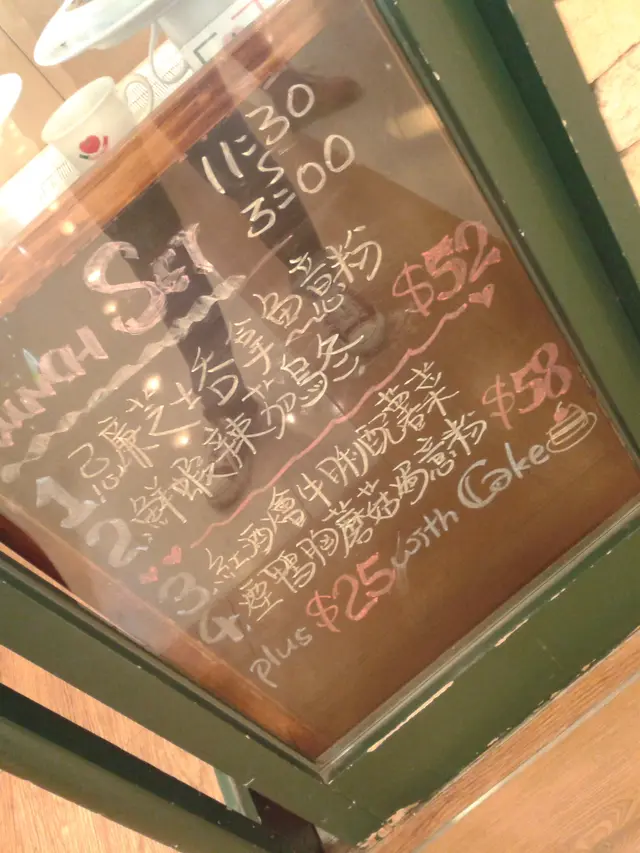 LUNCH SET
11:30
3:00
1. 忌廉芝士吞拿魚意粉
2. 鮮蝦辣茄烏冬 $52
3. 紅酒燴牛脷配薯菜
4. 煙鴨胸蘑菇焗意粉 $58
plus $25 with Cake